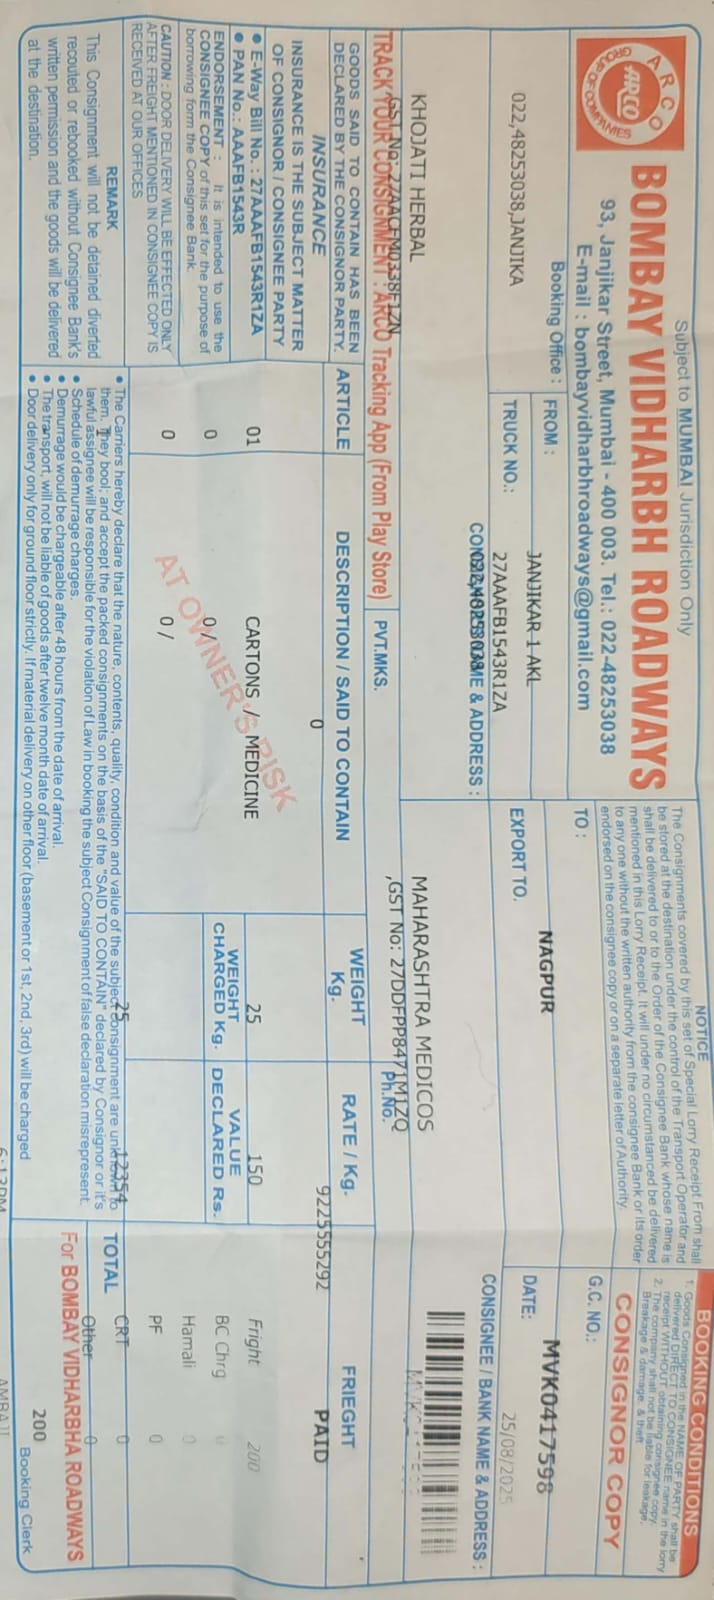 Subject to MUMBAI Jurisdiction Only
ARCO
ARCO
GROUP OF COMPANIES
BOMBAY VIDHARBH ROADWAYS
93, Janjikar Street, Mumbai - 400 003. Tel.: 022-48253038
E-mail : bombayvidharbhroadways@gmail.com
NOTICE
The Consignments covered by this set of Special Lorry Receipt From shall
be stored at the destination under the control of the Transport Operator and
shall be delivered to or to the Order of the Consignee Bank whose name is
mentioned in this Lorry Receipt. It will under no circumstanced be delivered
to any one without the written authority from the consignee Bank or its order
endorsed on the consignee copy or on a separate letter of Authority.
BOOKING CONDITIONS
1. Goods Consigned in the NAME OF PARTY shall be
delivered DIRECT TO CONSIGNEE name in the lorry
receipt WITHOUT obtaining consignee copy.
2. The company shall not be liable for leakage,
Breakage & damage. & theft
CONSIGNOR COPY
Booking Office :
022,48253038,JANJIKA
FROM :
JANJIKAR 1-AKL
TO :
NAGPUR
G.C. NO.:
MVK0417598
TRUCK NO.:
27AAAFB1543R1ZA
EXPORT TO.
DATE:
25/08/2025
022,48253038
NAME & ADDRESS :
CONSIGNEE / BANK NAME & ADDRESS :
KHOJATI HERBAL
GST No: 27AACFM0338F1ZN
MAHARASHTRA MEDICOS
,GST No: 27DDFPP8471M1ZQ
Ph.No.
TRACK YOUR CONSIGNMENT : ARCO Tracking App (From Play Store)
PVT.MKS.
9225555292
GOODS SAID TO CONTAIN HAS BEEN
DECLARED BY THE CONSIGNOR PARTY.
INSURANCE
INSURANCE IS THE SUBJECT MATTER
OF CONSIGNOR / CONSIGNEE PARTY
• E-Way Bill No. : 27AAAFB1543R1ZA
• PAN No.: AAAFB1543R
ENDORSEMENT : It is intended to use the
CONSIGNEE COPY of this set for the purpose of
borrowing form the Consignee Bank.
CAUTION : DOOR DELIVERY WILL BE EFFECTED ONLY
AFTER FREIGHT MENTIONED IN CONSIGNEE COPY IS
RECEIVED AT OUR OFFICES
REMARK
This Consignment will not be detained diverted
recouted or rebooked without Consignee Bank's
written permission and the goods will be delivered
at the destination.
ARTICLE
DESCRIPTION / SAID TO CONTAIN
WEIGHT Kg.
RATE / Kg.
FRIEGHT
0
PAID
01
CARTONS / MEDICINE
25
150
Fright 200
WEIGHT CHARGED Kg.
VALUE DECLARED Rs.
0
0 /
BC Chrg 0
Hamali 0
0
0 /
PF 0
AT OWNER'S RISK
1
25
12354
TOTAL
CRT 0
Other 0
• The Carriers hereby declare that the nature, contents, quality, condition and value of the subject consignment are unknown to
them. They bool; and accept the packed consignments on the basis of the "SAID TO CONTAIN" declared by Consignor or it's
lawful assignee will be responsible for the violation of Law in booking the subject Consignment of false declaration misrepresent.
• Schedule of demurrage charges.
• Demurrage would be chargeable after 48 hours from the date of arrival.
• The transport, will not be liable of goods after twelve month date of arrival.
• Door delivery only for ground floor strictly. If material delivery on other floor (basement or 1st, 2nd, 3rd) will be charged
For BOMBAY VIDHARBHA ROADWAYS
200
Booking Clerk